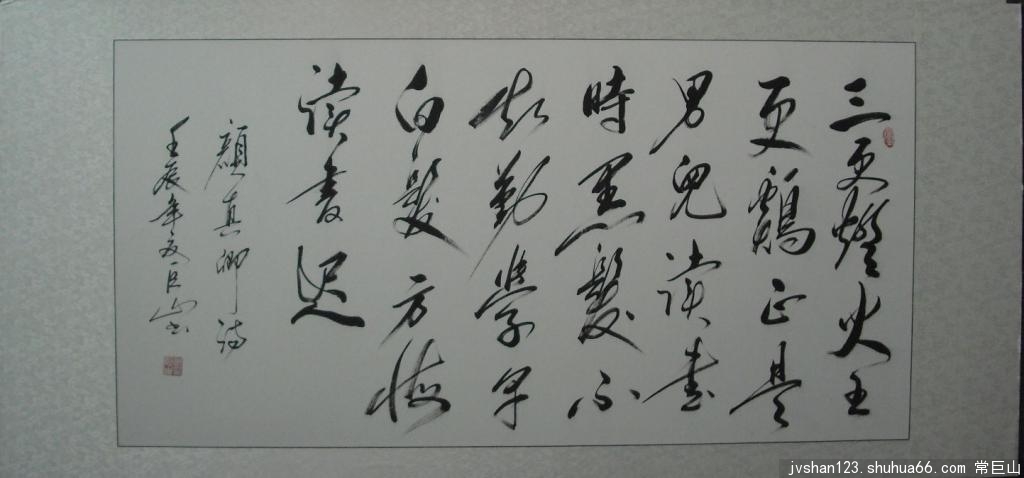 三更燈火五
更鷄正是
男兒讀書
時黑髮不
知勤學早
白髮方悔
讀書遲
顏真卿詩
壬辰年夏巨山書
jvshan123.shuhua66.com 常巨山